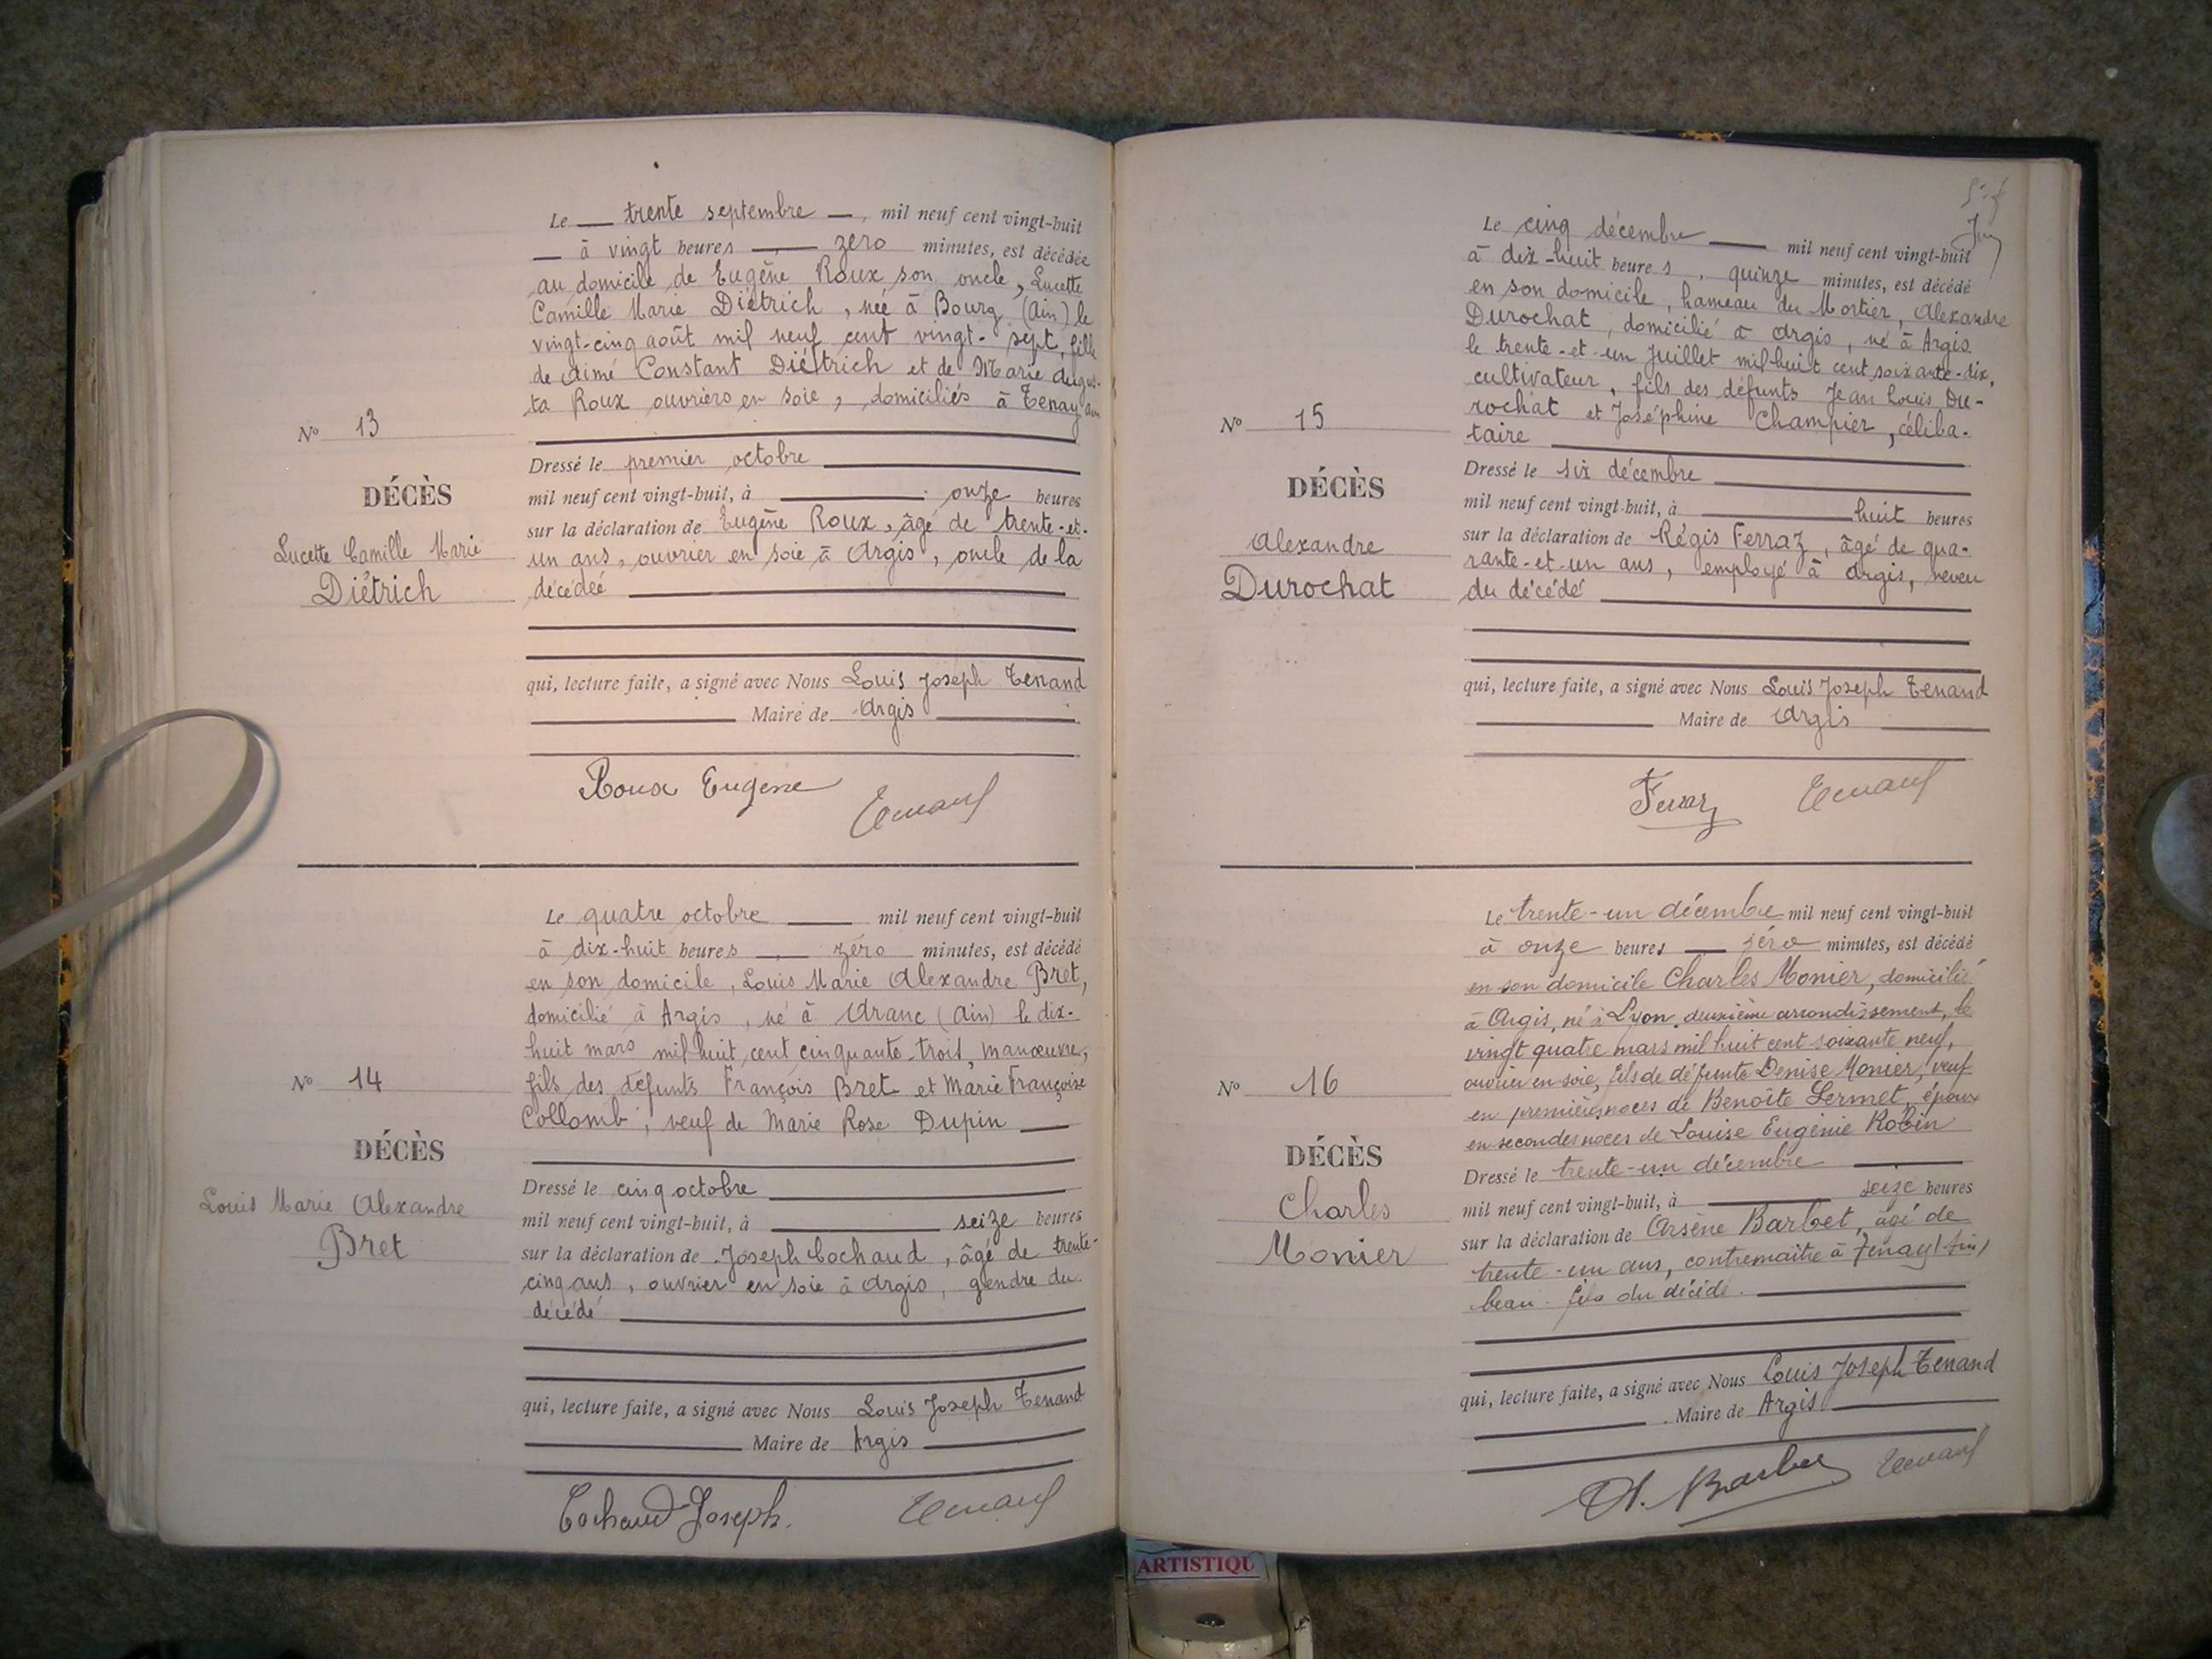 Le trente septembre, mil neuf cent vingt-huit
à vingt heures, zéro minutes, est décédée
au domicile de Eugène Roux son oncle, Lucette
Camille Marie Diétrich, née à Bourg (Ain) le
vingt-cinq août mil neuf cent vingt-sept, fille
de Aimé Constant Diétrich et de Marie Augus-
ta Roux ouvriers en soie, domiciliés à Tenay
No 13
DÉCÈS
Lucette Camille Marie
Diétrich
Dressé le premier octobre
mil neuf cent vingt-huit, à onze heures
sur la déclaration de Eugène Roux, âgé de trente-et-
un ans, ouvrier en soie à Argis, oncle de la
décédeé
qui, lecture faite, a signé avec Nous Louis Joseph Tenand
Maire de Argis
Roux Eugène
Tenand
Le quatre octobre mil neuf cent vingt-huit
à dix-huit heures, zéro minutes, est décédé
en son domicile, Louis Marie Alexandre Bret,
domicilié à Argis, né à Aranc (Ain) le dix-
huit mars mil huit cent cinquante-trois, manœuvre,
fils des défunts François Bret et Marie Françoise
Collomb, veuf de Marie Rose Dupin
No 14
DÉCÈS
Louis Marie Alexandre
Bret
Dressé le cinq octobre
mil neuf cent vingt-huit, à seize heures
sur la déclaration de Joseph Cochaud, âgé de trente-
cinq ans, ouvrier en soie à Argis, gendre du
décédé
qui, lecture faite, a signé avec Nous Louis Joseph Tenand
Maire de Argis
Cochaud Joseph.
Tenand
Le cinq décembre mil neuf cent vingt-huit
à dix-huit heures, quinze minutes, est décédé
en son domicile, hameau du Mortier, Alexandre
Durochat, domicilié à Argis, né à Argis
le trente-et-un Juillet mil huit cent soixante-dix,
cultivateur, fils des défunts Jean Louis Du-
rochat et Joséphine Champier, céliba-
taire
No 15
DÉCÈS
Alexandre
Durochat
Dressé le six décembre
mil neuf cent vingt-huit, à huit heures
sur la déclaration de Régis Ferraz, âgé de qua-
rante-et-un ans, employé à Argis, neveu
du décédé
qui, lecture faite, a signé avec Nous Louis Joseph Tenand
Maire de Argis
Ferraz
Tenand
Le trente-un décembre mil neuf cent vingt-huit
à onze heures zéro minutes, est décédé
en son domicile Charles Monier, domicilié
à Argis, né à Lyon, deuxième arrondissement, le
vingt quatre mars mil huit cent soixante neuf,
ouvrier en soie, fils de défunte Denise Monier, veuf
en premières noces de Benoîte Sermet, époux
en secondes noces de Louise Eugénie Robin
No 16
DÉCÈS
Charles
Monier
Dressé le trente-un décembre
mil neuf cent vingt-huit, à seize heures
sur la déclaration de Arsène Barbet, âgé de
trente-un ans, contremaître à Tenay (Ain)
beau-fils du décédé.
qui, lecture faite, a signé avec Nous Louis Joseph Tenand
Maire de Argis
A. Barbet
Tenand
ARTISTIQU